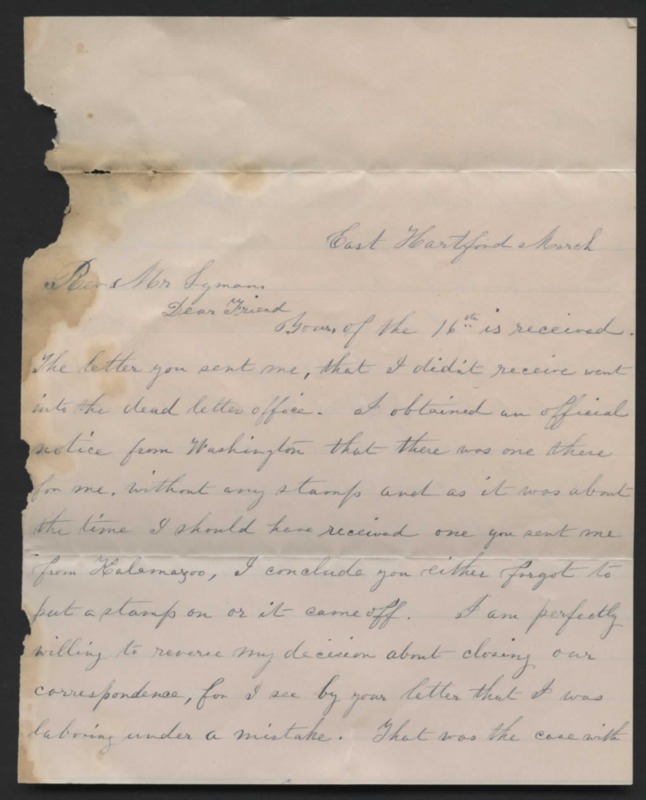 East Hartford March
Rev. Mr Lyman.
Dear Friend
Yours of the 16th is received.
The letter you sent me, that I didn't receive went
into the dead letter office. I obtained an official
notice from Washington that there was one there
for me, without any stamp and as it was about
the time I should have received one you sent me
from Kalamazoo, I conclude you either forgot to
put a stamp on or it came off. I am perfectly
willing to reverse my decision about closing our
correspondence, for I see by your letter that I was
laboring under a mistake. That was the case with